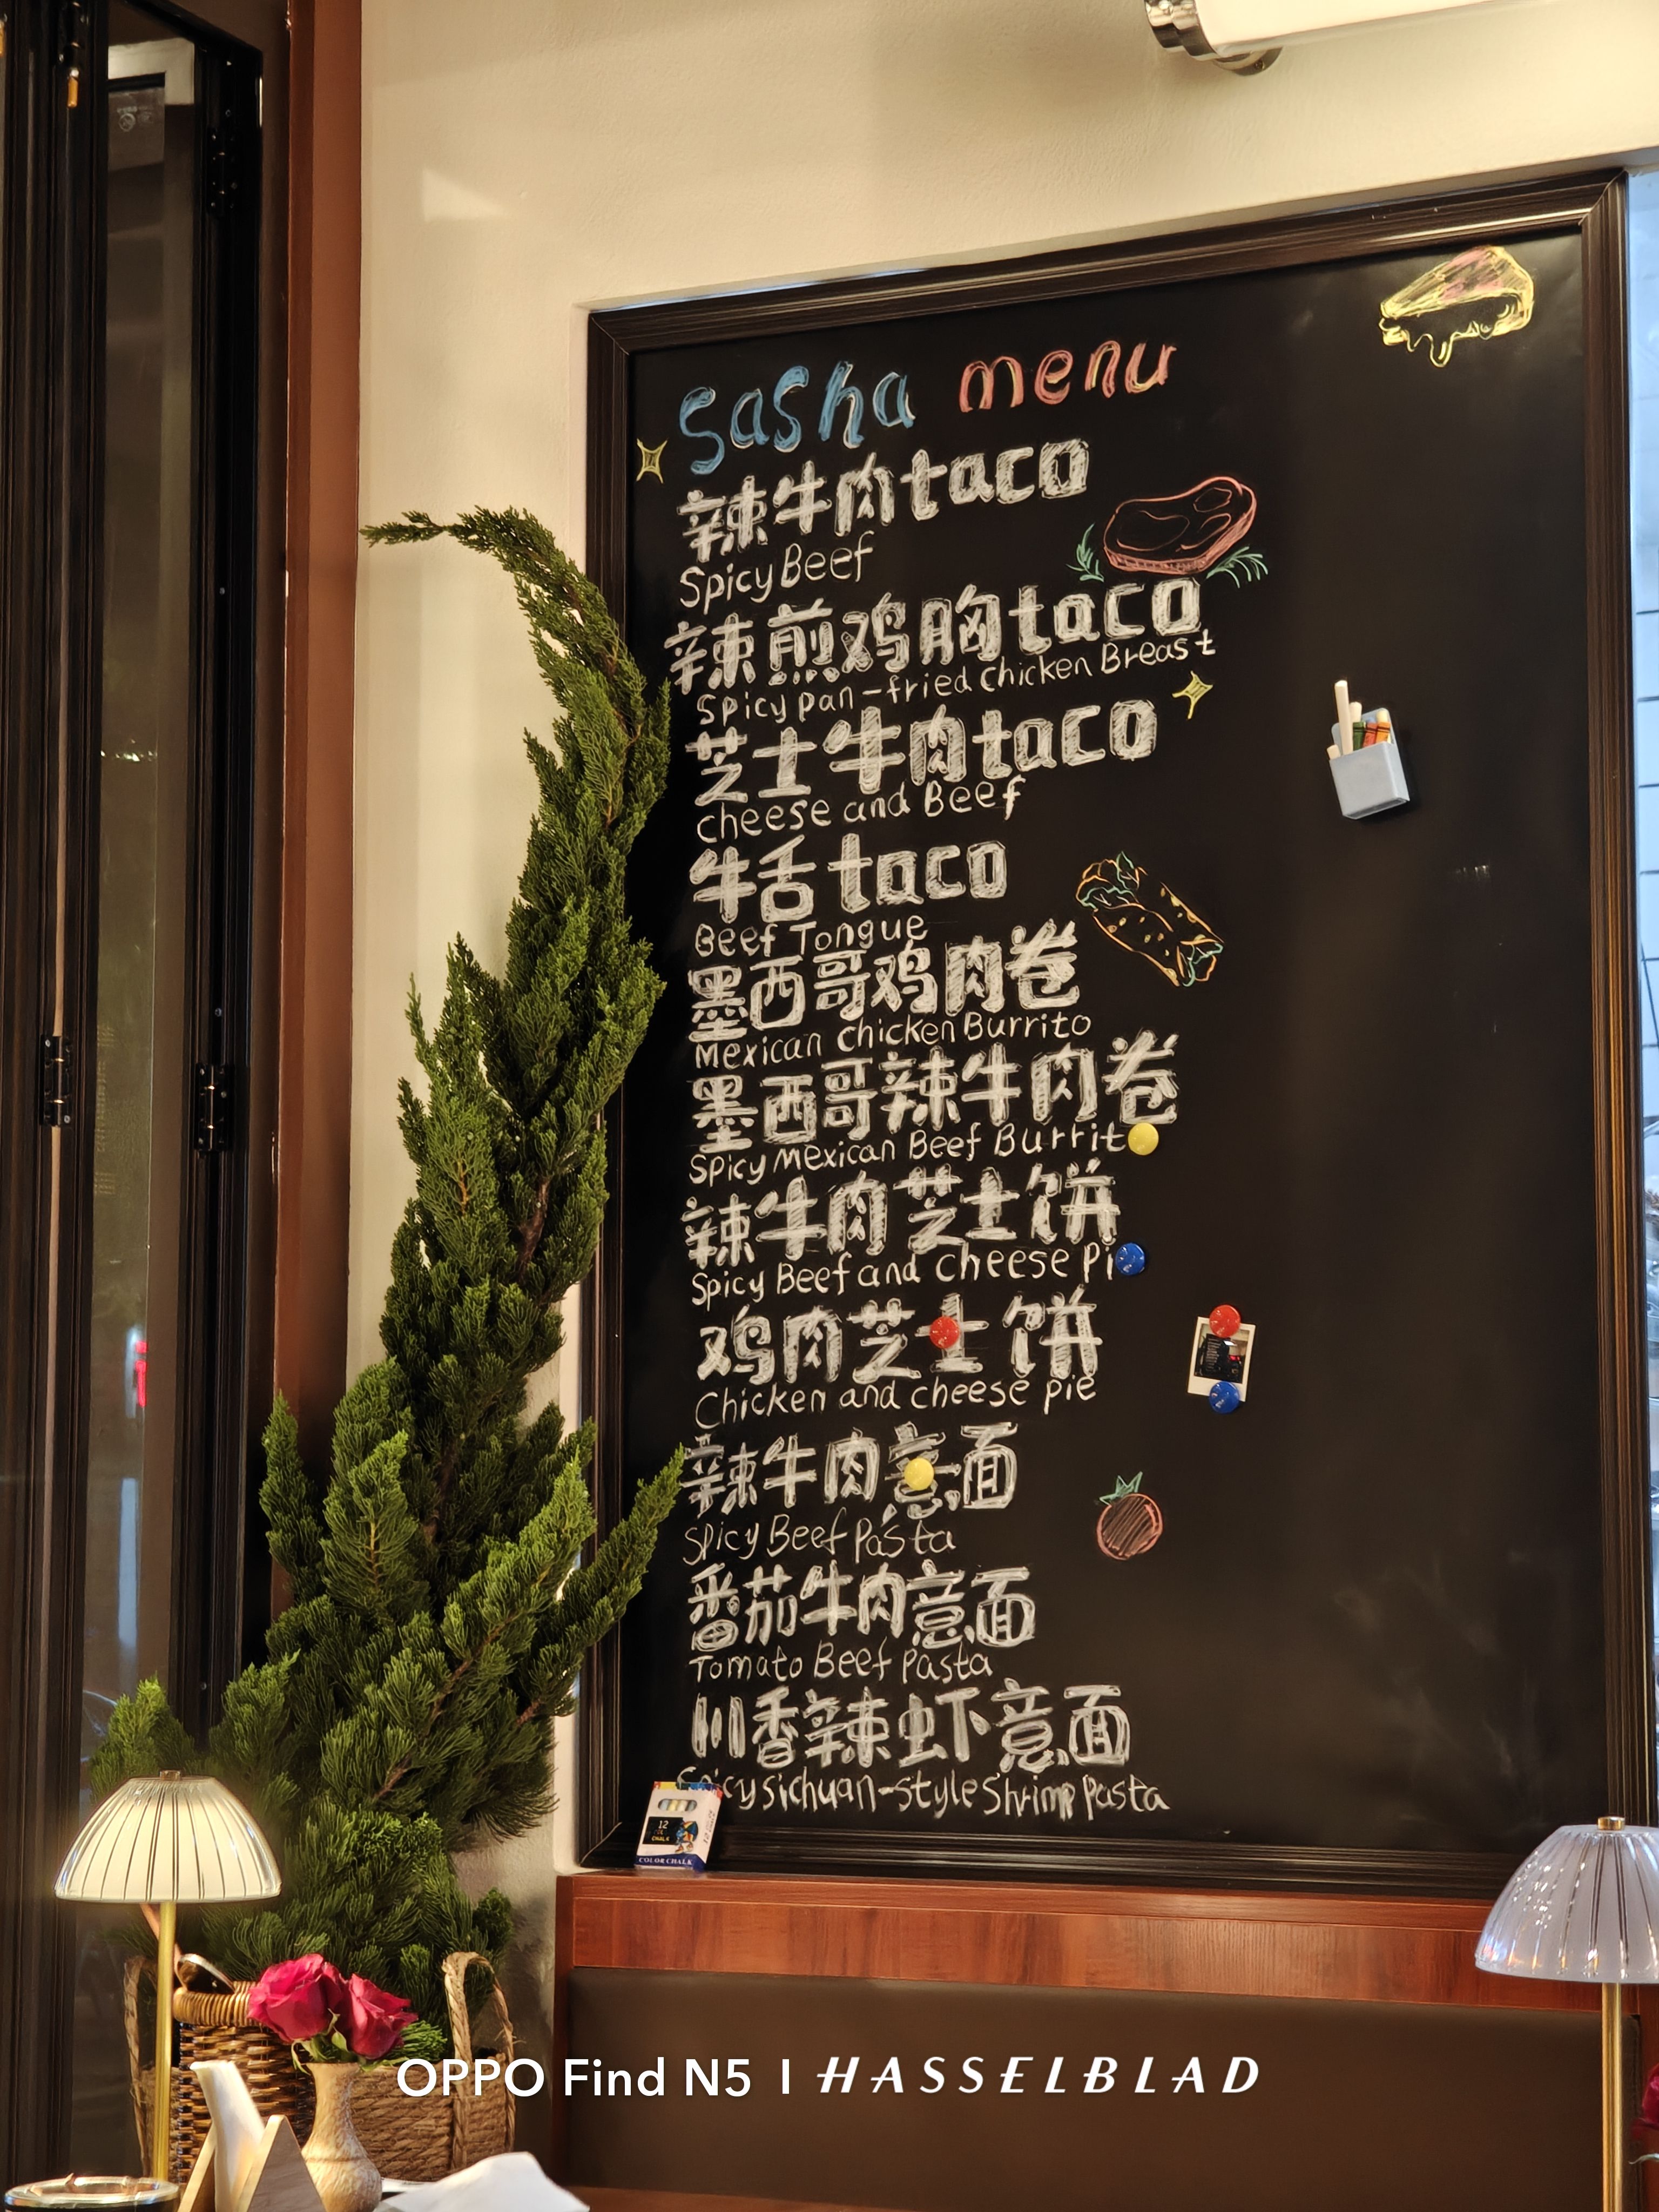 sasha menu
辣牛肉taco
Spicy Beef
辣煎鸡胸taco
Spicy pan-fried chicken Breast
芝士牛肉taco
cheese and Beef
牛舌taco
Beef Tongue
墨西哥鸡肉卷
Mexican chicken Burrito
墨西哥辣牛肉卷
Spicy Mexican Beef Burrit
辣牛肉芝士饼
Spicy Beef and cheese Pi
鸡肉芝士饼
Chicken and cheese pie
辣牛肉意面
Spicy Beef Pasta
番茄牛肉意面
Tomato Beef Pasta
川香辣虾意面
Spicy sichuan-style Shrimp Pasta
12
CHALK
COLOR CHALK
OPPO Find N5 | HASSELBLAD